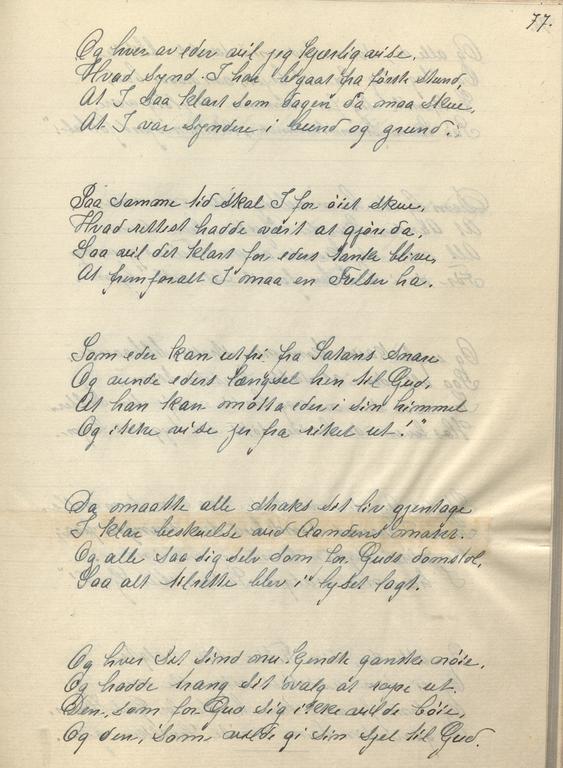 77.
Og hver av eder vil jeg kjærlig vise,
Hvad synd I har begaat fra første stund,
At I saa klart som dagen da maa skue,
At I var syndere i bund og grund.

Paa samme tid skal I for øiet skue,
Hvad rettest hadde vært at gjøre da,
Saa vil det klart for eders tanke blive,
At fremforalt I maa en Frelser ha.

Som eder kan utfri fra Satans snare
Og vende eders længsel hen til Gud,
At han kan motta eder i sin himmel
Og ikke vise jer fra riket ut!"

Da maatte alle straks sit liv gjentage
I klar beskuelse ved Aandens
Og alle saa sig selv som for Guds domstol,
Saa alt tilrette blev i lyset lagt.

Og hver sit sind nu kjendte ganske nøie,
Og hadde trang sit valg at rope ut.
Den, som for Gud sig ikke vilde bøie,
Og den, som vilde gi sin sjel til Gud.